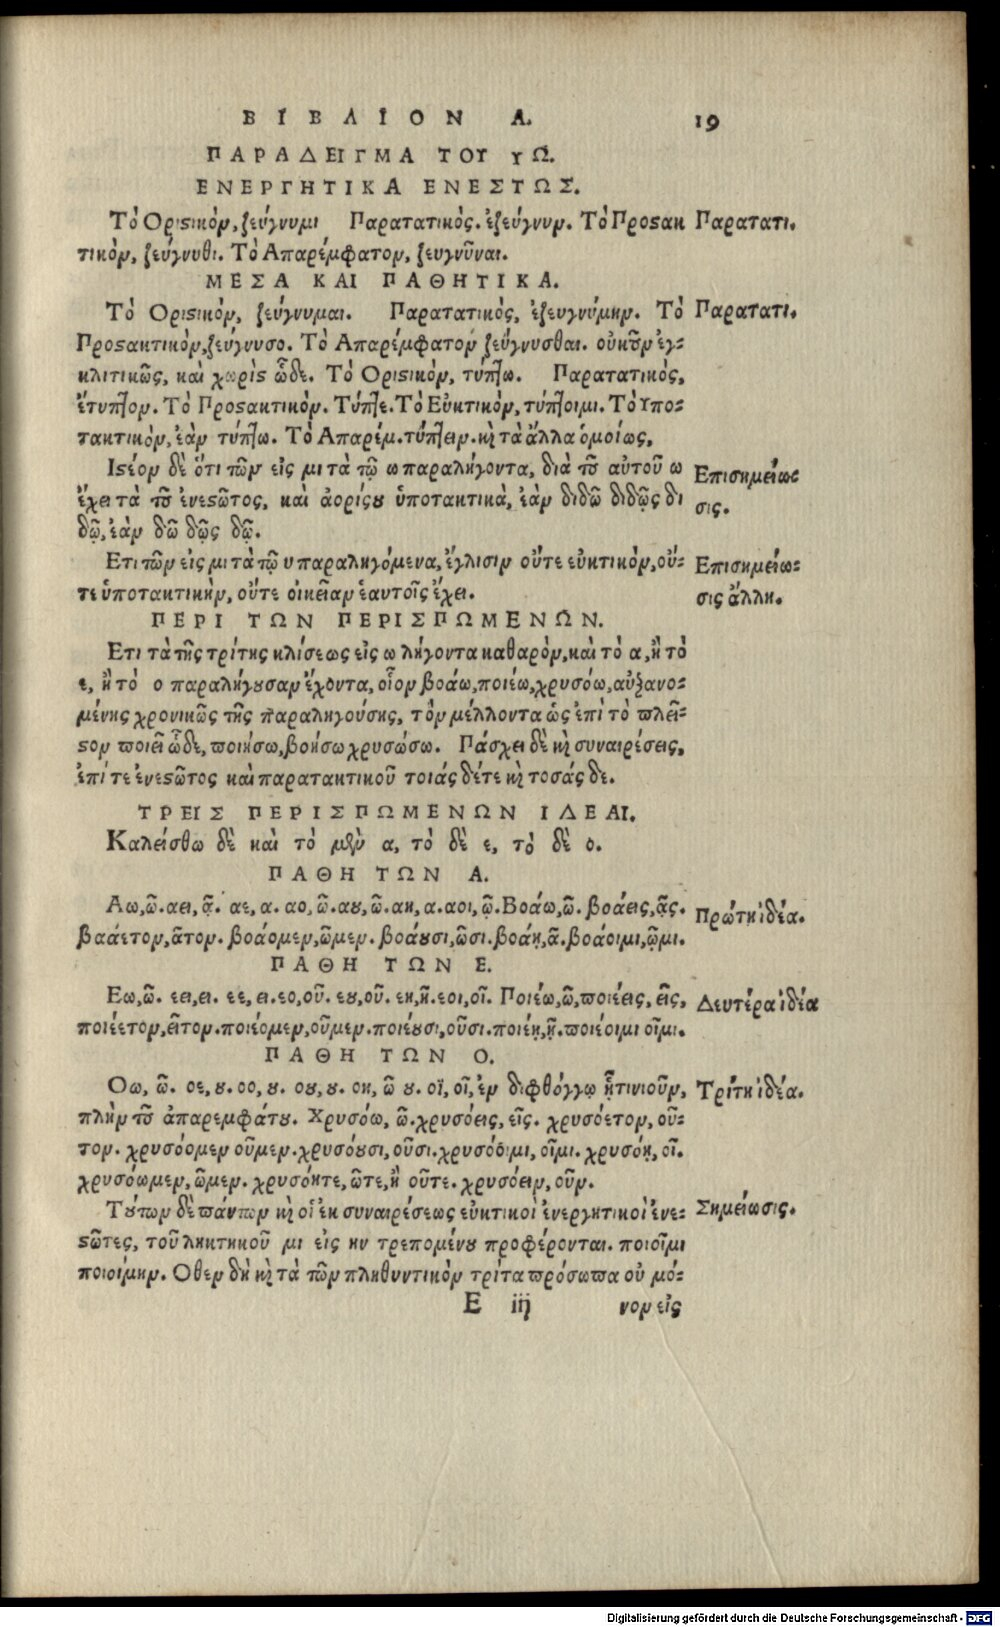 ΒΙΒΛΙΟΝ Α. 19
ΠΑΡΑΔΕΙΓΜΑ ΤΟΥ ΥΩ.
ΕΝΕΡΓΗΤΙΚΑ ΕΝΕΣΤΩΣ.
Τὸ Οριϛικὸν, ζεύγνυμι Παρατατικὸς. ἐζεύγνυν. Τὸ Προϛακ Παρατατι.
τικὸν, ζεύγνυθι. Τὸ Απαρέμφατον, ζευγνῦναι.
ΜΕΣΑ ΚΑΙ ΠΑΘΗΤΙΚΑ.
Τὸ Οριϛικὸν, ζεύγνυμαι. Παρατατικὸς, ἐζευγνύμην. Τὸ Παρατατι.
Προϛακτικὸν, ζεύγνυσο. Τὸ Απαρέμφατον ζεύγνυσθαι. οὐκοῦν ἐγ-
κλιτικῶς, καὶ χωρὶς ὧδε. Τὸ Οριϛικὸν, τύπτω. Παρατατικὸς,
ἔτυπτον. Τὸ Προϛακτικὸν. Τύπτε. Τὸ Εὐκτικὸν, τύπτοιμι. Τὸ Υπο-
τακτικὸν, ἐὰν τύπτω. Τὸ Απαρέμ. τύπτειν. κὶ τὰ ἄλλα ὁμοίως.
Ιϛέον δὲ ὅτι τῶν εἰς μι τὰ τῷ ω παραλήγοντα, διὰ τοῦ αὐτοῦ ω Επισημείωσ
ἔχει τὰ τοῦ ἐνεϛῶτος, καὶ ἀορίϛου ὑποτακτικὰ, ἐὰν διδῶ διδῷς δι σις.
δῷ, ἐὰν δῶ δῷς δῷ.
Ετι τῶν εἰς μι τὰ τῷ υ παραληγόμενα, ἔγλισιν οὔτε εὐκτικὸν, οὔ- Επισημείω-
τε ὑποτακτικὴν, οὔτε οἰκείαν ἑαυτοῖς ἔχει. σις ἄλλη.
ΠΕΡΙ ΤΩΝ ΠΕΡΙΣΠΩΜΕΝΩΝ.
Ετι τὰ τῆς τρίτης κλίσεως εἰς ω λήγοντα καθαρὸν, καὶ τὸ α, ἢ τὸ
ε, ἢ τὸ ο παραλήγουσαν ἔχοντα, οἷον βοάω, ποιέω, χρυσόω, αὐξανο-
μένης χρονικῶς τῆς παραληγούσης, τὸν μέλλοντα ὡς ἐπὶ τὸ πλεῖ-
ϛον ποιεῖ ὧδε, ποιήσω, βοήσω χρυσώσω. Πάσχει δὲ κὶ συναιρέσεις,
ἐπί τε ἐνεϛῶτος καὶ παρατακτικοῦ τοιάς δέ τε κὶ τοσάς δε.
ΤΡΕΙΣ ΠΕΡΙΣΠΩΜΕΝΩΝ ΙΔΕΑΙ.
Καλείσθω δὲ καὶ τὸ μὲν α, τὸ δὲ ε, τὸ δὲ ο.
ΠΑΘΗ ΤΩΝ Α.
Αω, ῶ. αει, ᾷ. αε, α. αο, ῶ. αου, ῶ. αη, α. αοι, ῷ. Βοάω, ῶ. βοάεις, ᾷς. Πρώτη ἰδέα.
βαάετον, ᾶτον. βοάομεν, ῶμεν. βοάουσι, ῶσι. βοάῃ, ᾷ. βοάοιμι, ῷμι.
ΠΑΘΗ ΤΩΝ Ε.
Εω, ῶ. εει, ει. εε, ει. εο, οῦ. εου, οῦ. εη, ῆ. εοι, οῖ. Ποιέω, ῶ, ποιέεις, εῖς, Δευτέρα ἰδέα
ποιέετον, εῖτον. ποιέομεν, οῦμεν. ποιέουσι, οῦσι. ποιέῃ, ῇ. ποιέοιμι οῖμι.
ΠΑΘΗ ΤΩΝ Ο.
Οω, ῶ. οε, ου. οο, ου. οου, ου. οη, ῶ ου. οϊ, οῖ, ἐν διφθόγγῳ ᾗτινιοῦν, Τρίτη ἰδέα.
πλὴν τοῦ ἀπαρεμφάτου. Χρυσόω, ῶ. χρυσόεις, εῖς. χρυσόετον, οῦ-
τον. χρυσόομεν οῦμεν. χρυσόουσι, οῦσι. χρυσόοιμι, οῖμι. χρυσόη, οῖ.
χρυσόωμεν, ῶμεν. χρυσόητε, ῶτε, ἢ οῦτε. χρυσόειν, οῦν.
Τούτων δὲ πάντων κὶ οἱ ἐκ συναιρέσεως εὐκτικοὶ ἐνεργητικοὶ ἐνε- Σημείωσις.
ϛῶτες, τοῦ ληκτηκοῦ μι εἰς ην τρεπομένου προφέρονται. ποιοῖμι
ποιοίμην. Οθεν δὴ κὶ τὰ τῶν πληθυντικὸν τρίτα πρόσωπα οὐ μό-
E iij νον εἰς
Digitalisierung gefördert durch die Deutsche Forschungsgemeinschaft - DFG